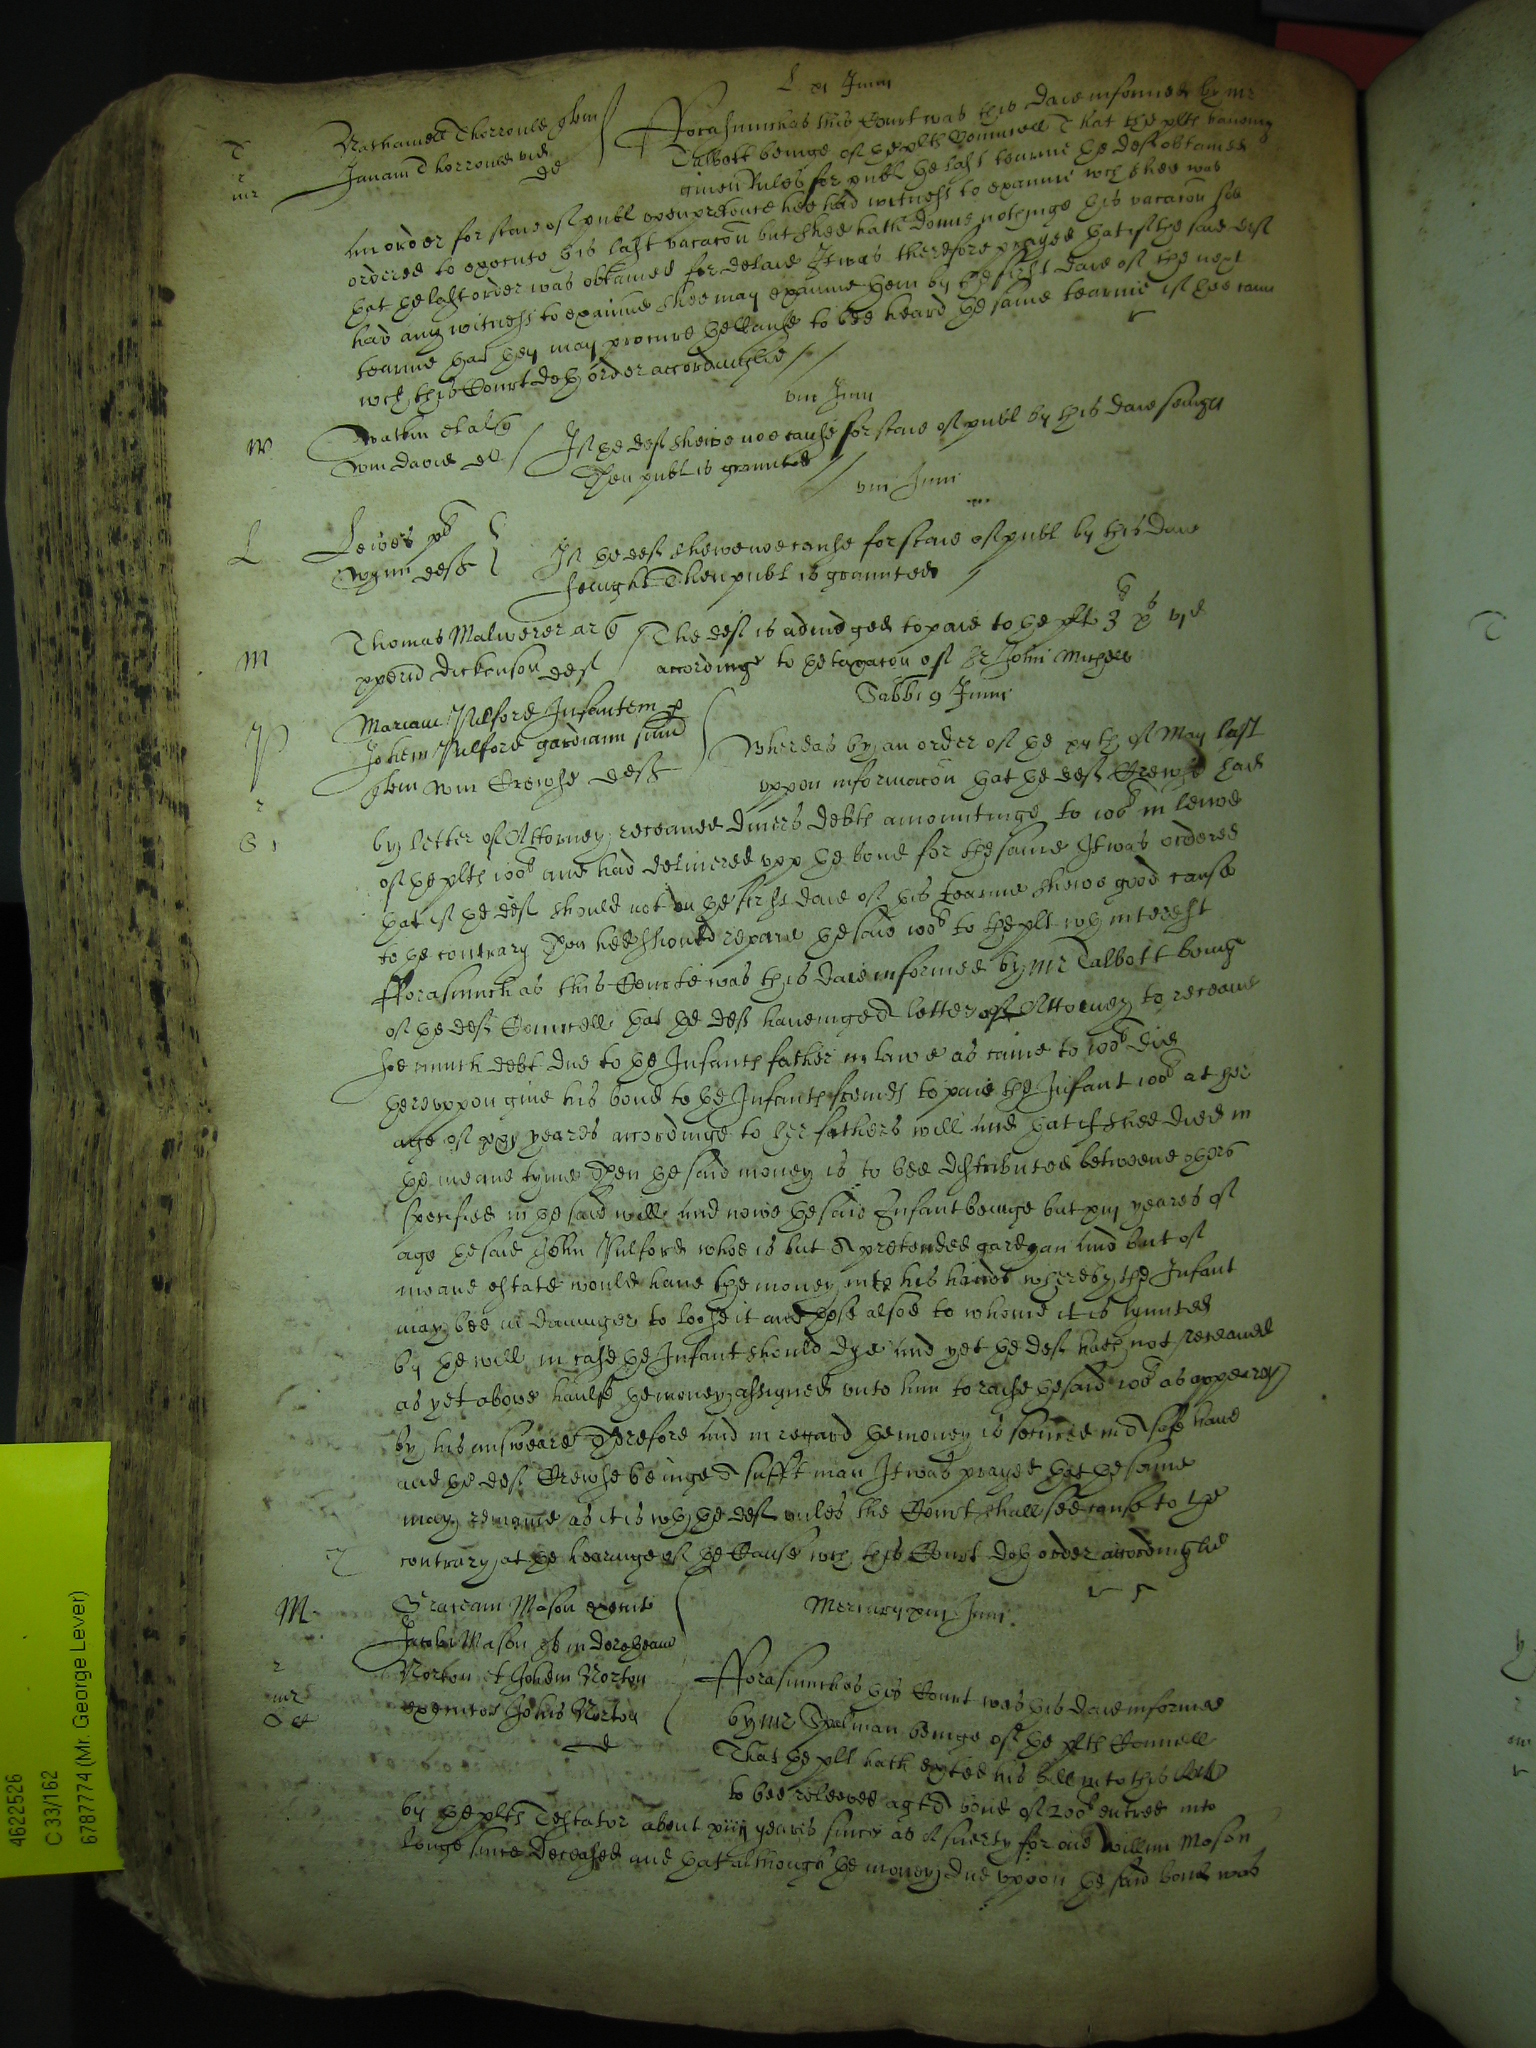 L xi Junii
T
r
mr
Nathaniell Thorrowle quer
Janam Thorrowle vid
de
Fforasmuchas this Court was this daie informed by mr
Talbott beinge of the plts Councell That the plt haveing
given Rules for publ the last tearme the deft obtained
an order for staie of publ uppon pretence hee had witness to examine wch shee was
ordered to execute this last vacacon but shee hath donne nothinge this vacacon soe
that the last order was obtained for delaie It was therefore prayed that if the said deft
had any witness to examine shee may examine them by the first daie of the next
tearme that they may procure the cause to bee heard the same tearme if hee cann
wch this Court doth order accordinglie
viii Junii
W
Watkin et al
Wm Davie de
If the deft shewe noe cause for staie of publ by this daie sevnight
Then publ is graunted
viii Junii
L
Lewes
Wynn deft
If the deft shewe noe cause for staie of publ by this daie
sevnight Then publ is graunted
M
Thomas Malwerer ar
Dickenson deft
The deft is adiudged to paie to the plt
accordinge to the taxacon of Sr John
Sabbi 9 Junii
P
r
Mariam Pulford Infantem p
Johem Pulford gardianu suu
quer Wm Crewse deft
Whereas by an order of the xvth of May last
uppon informacon that the deft Crewse had
by letter of Attorney receaved divers debts amountinge to 100l in lewe
of the plts 100l and had delivered upp the bond for the same It was ordered
that if the deft should not on the first daie of this tearme shewe good cause
to the contrary Then hee should repaie the said 100l to the plt wth interest
Fforasmuch as this Courte was this daie informed by mr Talbott being
of the defts Councell that the deft haveinge a letter of Attorney to receave
soe much debt due to the Infants father in lawe as came to 100l did
thereuppon give his bond to the Infants freinds to paie the Infant 100l at her
age of xxj yeares accordinge to her fathers will And that if shee died in
the meane tyme Then the said money is to bee distributed betweene others
specified in the said will And nowe the said Infant beinge but xiij yeares of
age the said John Pulford whoe is but a pretended gardyan And but of
meane estate would have the money into his hands whereby the Infant
may bee in daunger to loose it and those alsoe to whome it is lymited
by the will in case the Infant should dye And yet the deft hath not receaved
as yet above haulfe the money assigned unto him to raise the said 100l as appeareth
by his answeare Therefore And in regard the money is secured in a safe hand
and the deft Crewse beinge a suffit man It was prayed that the same
may remaine as it is wth the deft unles the Court shall see cause to the
contrary at the hearinge of the Cause wch this Court doth order accordinglie
M
r
mr
Mason
Jacobi Mason
Norton et Johem Norton
executor Johis Norton
de
Mercurij xiij Junii
Fforasmuchas this Court was this daie informed
by mr Spelman beinge of the plts Councell
That the plt hath exhibited his bill into this Court
to bee releeved agt a bond of 200l entred into
by the plts Testator about xiiij yeares since as a suerty for one Willm Mason
longe since deceased and that although the money due uppon the said bond was
4622526
C 33/162
67877774 (Mr. George Lever)